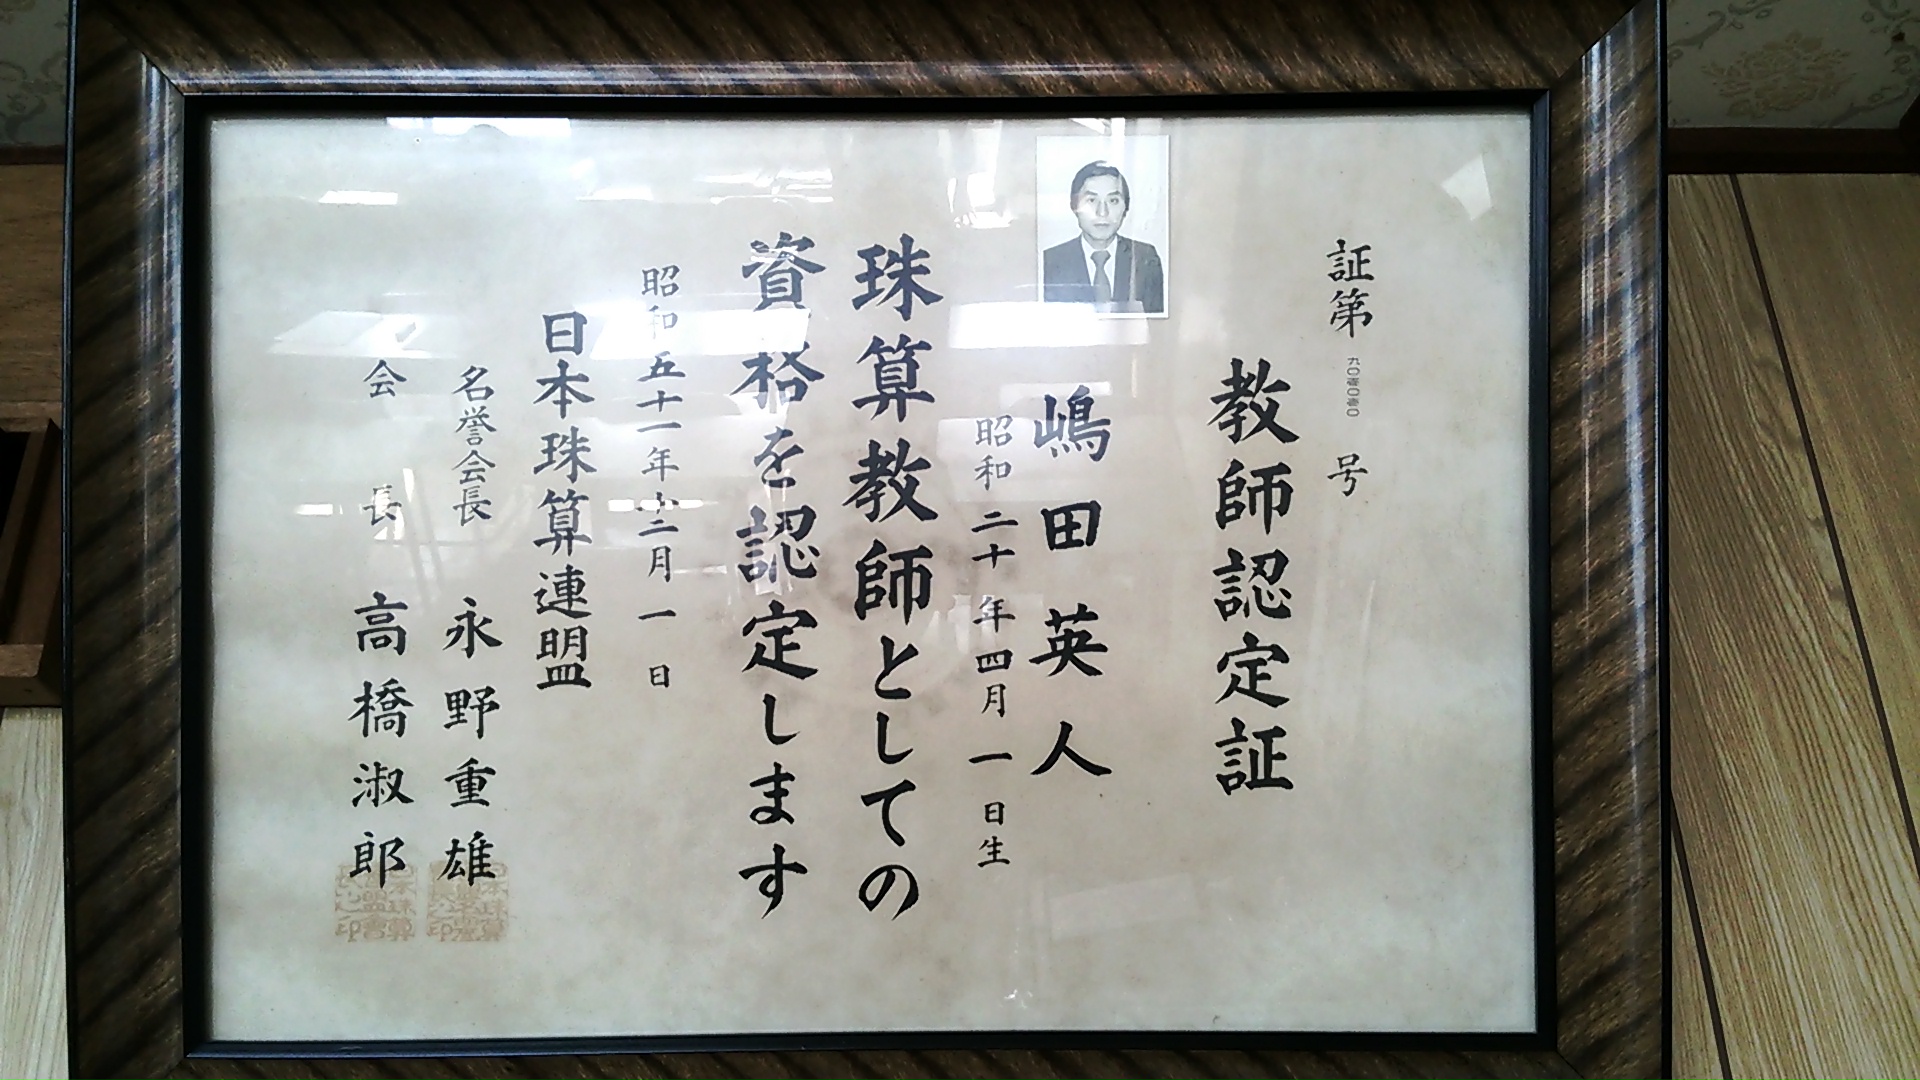 証第 九〇壱〇壱〇 号
教師認定証
嶋田英人
昭和二十年四月一日生
珠算教師としての
資格を認定します
昭和五十一年十二月一日
日本珠算連盟
名誉会長 永野重雄
会長 高橋淑郎